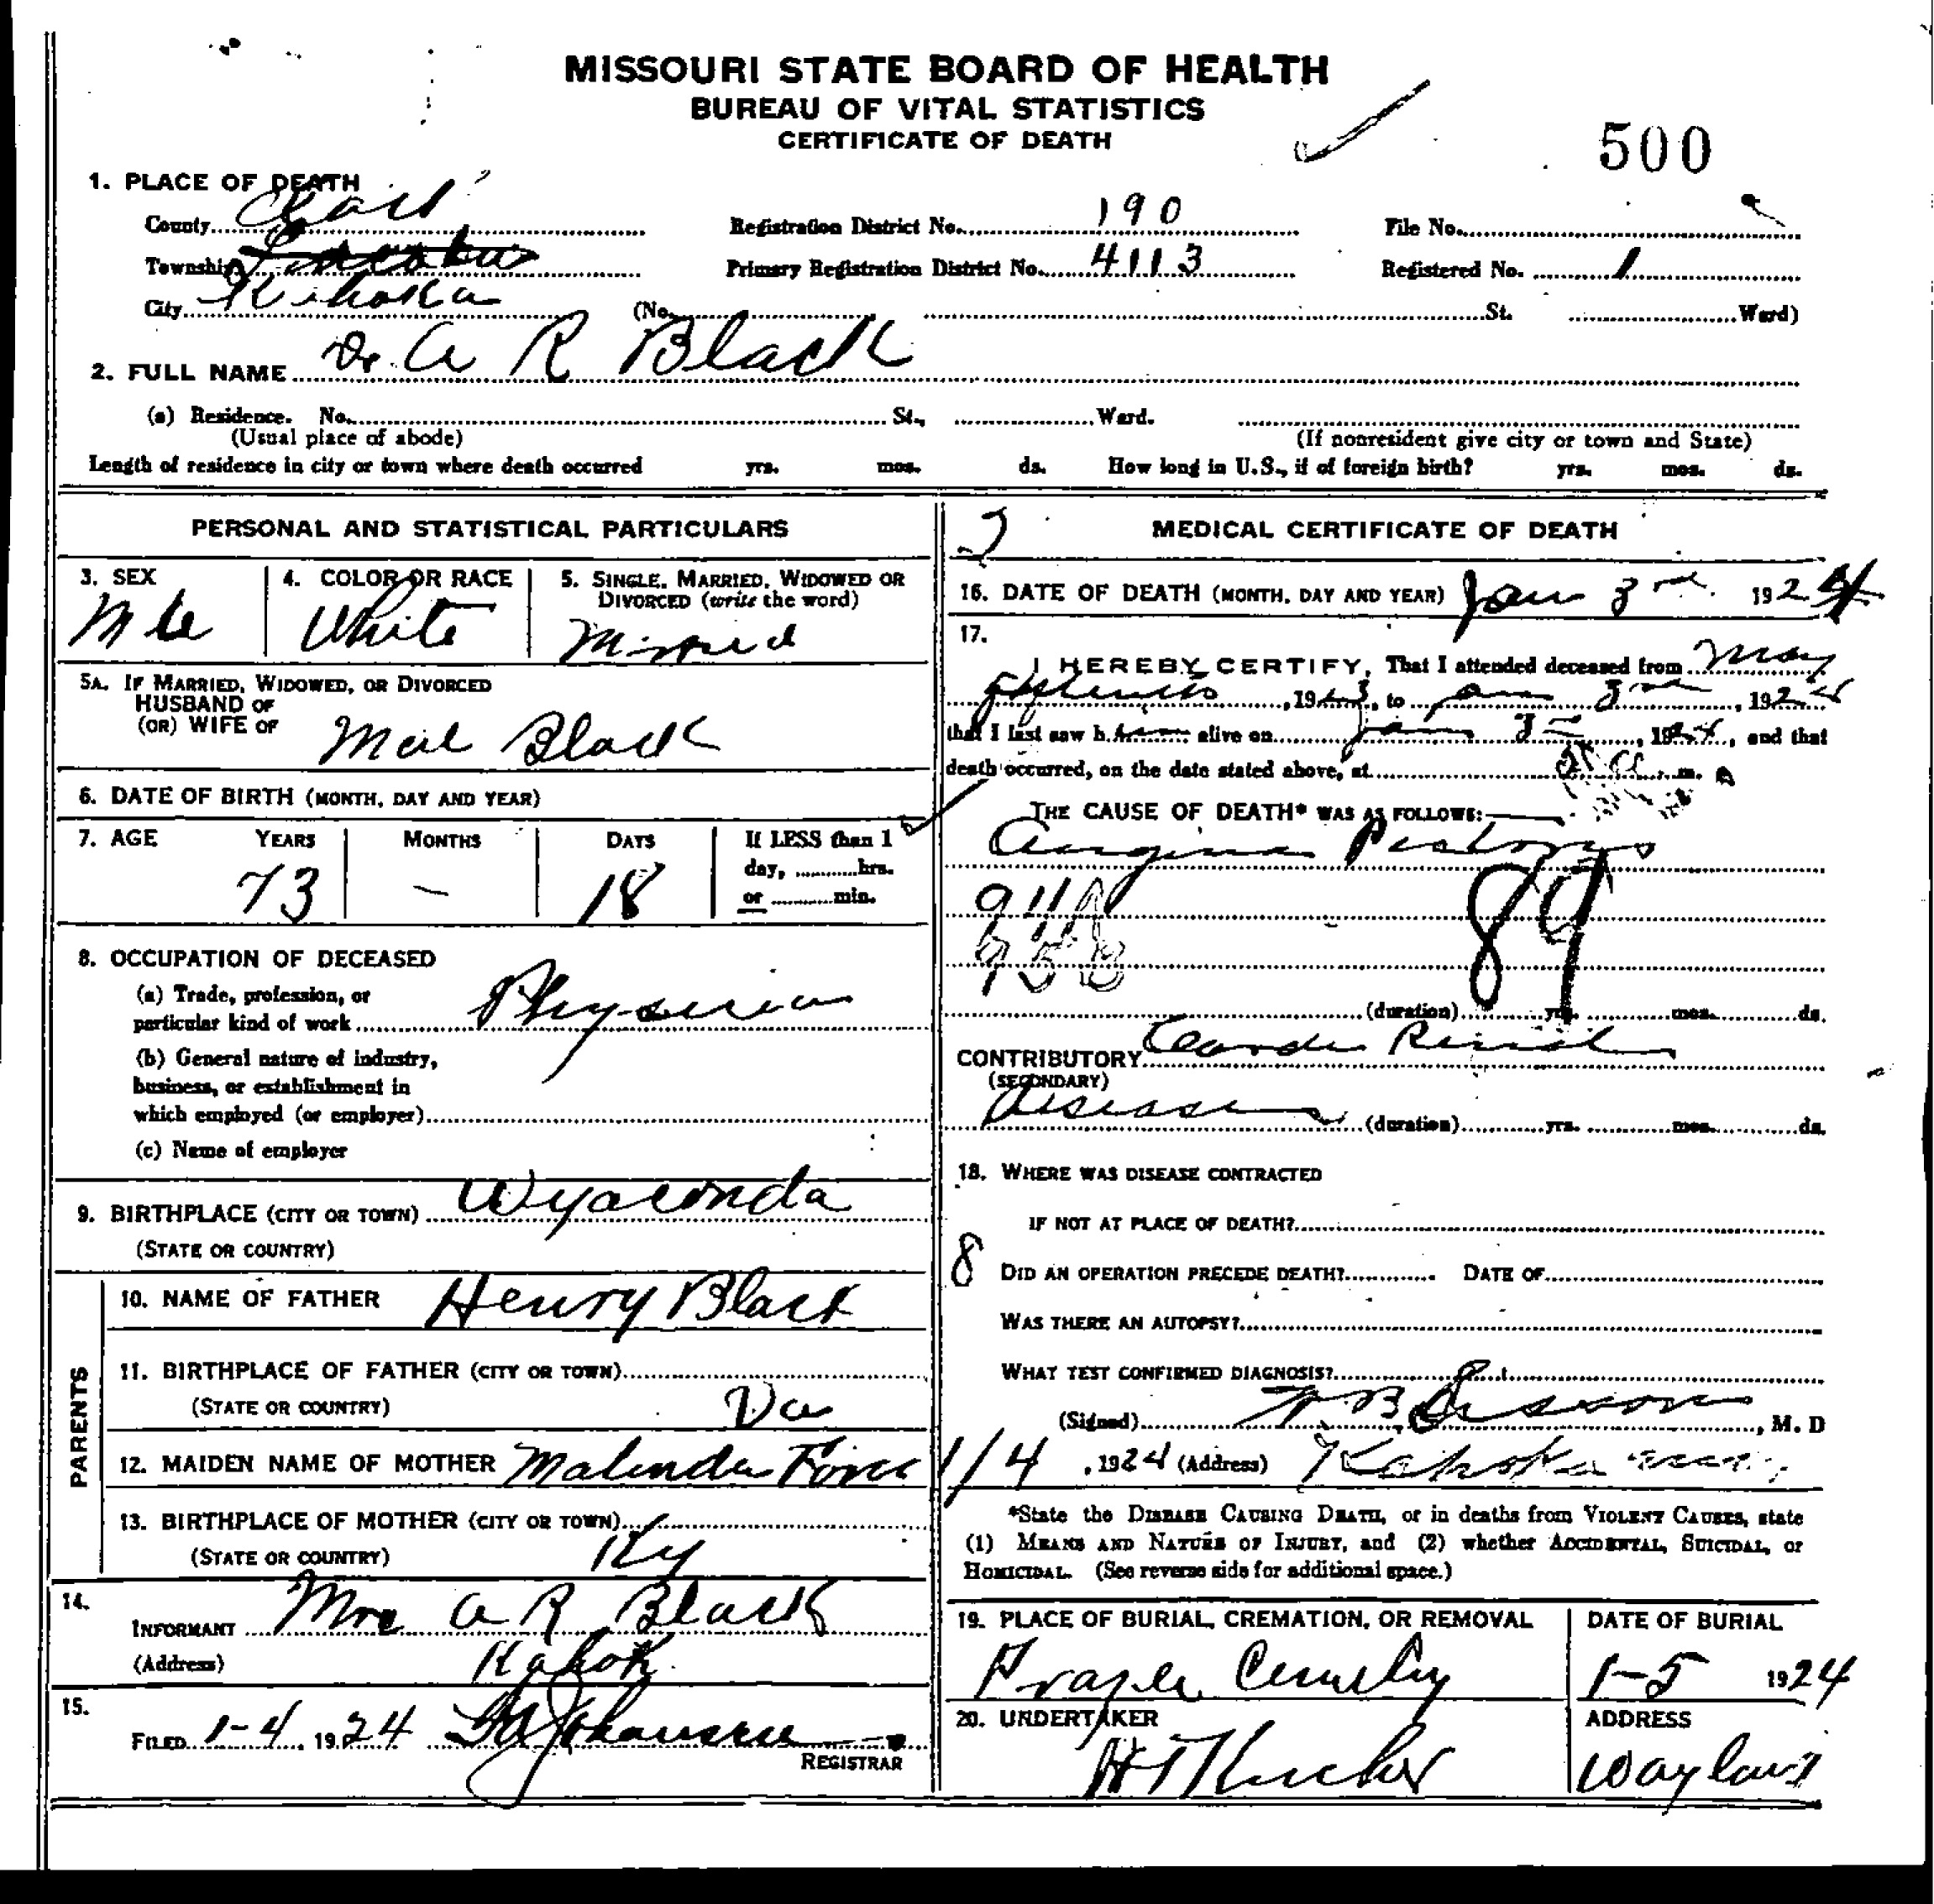 MISSOURI STATE BOARD OF HEALTH
BUREAU OF VITAL STATISTICS
CERTIFICATE OF DEATH
500
1. PLACE OF DEATH
County Clark Registration District No. 190 File No.
Township Primary Registration District No. 4113 Registered No. 1
City Kahoka (No. St. Ward)
2. FULL NAME Dr. A R Black
(a) Residence. No. St., Ward.
(Usual place of abode) (If nonresident give city or town and State)
Length of residence in city or town where death occurred yrs. mos. ds. How long in U.S., if of foreign birth? yrs. mos. ds.
PERSONAL AND STATISTICAL PARTICULARS
3. SEX 4. COLOR OR RACE 5. SINGLE, MARRIED, WIDOWED OR
DIVORCED (write the word)
White
5A. IF MARRIED, WIDOWED, OR DIVORCED
HUSBAND OF
(OR) WIFE OF Black
6. DATE OF BIRTH (MONTH, DAY AND YEAR)
7. AGE YEARS MONTHS DAYS If LESS than 1
day, hrs.
or min.
73 — 18
8. OCCUPATION OF DECEASED
(a) Trade, profession, or
particular kind of work Physician
(b) General nature of industry,
business, or establishment in
which employed (or employer)
(c) Name of employer
9. BIRTHPLACE (CITY OR TOWN) Wyaconda
(STATE OR COUNTRY)
PARENTS
10. NAME OF FATHER Henry Black
11. BIRTHPLACE OF FATHER (CITY OR TOWN)
(STATE OR COUNTRY) Va
12. MAIDEN NAME OF MOTHER Malinda
13. BIRTHPLACE OF MOTHER (CITY OR TOWN)
(STATE OR COUNTRY) Ky
14.
INFORMANT Mrs A R Black
(Address) Kahok
15.
FILED 1-4, 1924 Johansen
REGISTRAR
MEDICAL CERTIFICATE OF DEATH
16. DATE OF DEATH (MONTH, DAY AND YEAR) Jan 3rd 1924
17.
I HEREBY CERTIFY, That I attended deceased from May
, 1923, to Jan 3rd, 1924
that I last saw him alive on Jan 3, 1924, and that
death occurred, on the date stated above, at m.
THE CAUSE OF DEATH* WAS AS FOLLOWS:
Angina Pectoris
89
(duration) yrs. mos. ds.
CONTRIBUTORY Cardio Renal
(SECONDARY)
disease (duration) yrs. mos. ds.
18. WHERE WAS DISEASE CONTRACTED
IF NOT AT PLACE OF DEATH?
8 DID AN OPERATION PRECEDE DEATH? DATE OF
WAS THERE AN AUTOPSY?
WHAT TEST CONFIRMED DIAGNOSIS?
(Signed) , M. D
1/4, 1924 (Address) Kahoka
*State the DISEASE CAUSING DEATH, or in deaths from VIOLENT CAUSES, state
(1) MEANS AND NATURE OF INJURY, and (2) whether ACCIDENTAL, SUICIDAL, or
HOMICIDAL. (See reverse side for additional space.)
19. PLACE OF BURIAL, CREMATION, OR REMOVAL DATE OF BURIAL
1-5 1924
20. UNDERTAKER ADDRESS
Wayland